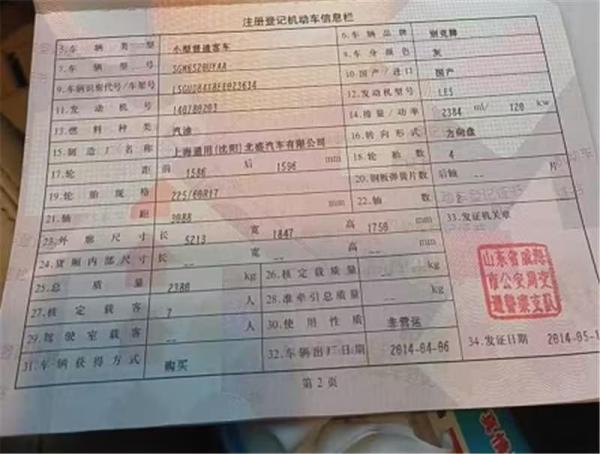 注册登记机动车信息栏
5.车辆类型 小型普通客车 6.车辆品牌 别克牌
7.车辆型号 SGM6520UYAA 8.车身颜色 灰
9.车辆识别代号/车架号 10.国产/进口 国产
11.发动机号 140780203 12.发动机型号 LE5
13.燃料种类 汽油 14.排量/功率 2384 ml/ 120 kw
15.制造厂名称 上海通用(沈阳)北盛汽车有限公司 16.转向形式 方向盘
17.轮距 前 1586 后 1596 mm 18.轮胎数 4
19.轮胎规格 225/60R17 20.钢板弹簧片数 后轴 -- 片
21.轴距 3088 mm 22.轴数
23.外廓尺寸 长 5213 宽 1847 高 1750 mm 33.发证机关章
24.货厢内部尺寸 长 -- 宽 -- 高 -- mm
25.总质量 2380 kg 26.核定载质量 -- kg
27.核定载客 7 人 28.准牵引总质量 -- kg
29.驾驶室载客 -- 人 30.使用性质 非营运
31.车辆获得方式 购买 32.车辆出厂日期 2014-04-06 34.发证日期 2014-05-1
市公安局交
通警察支队
第2页